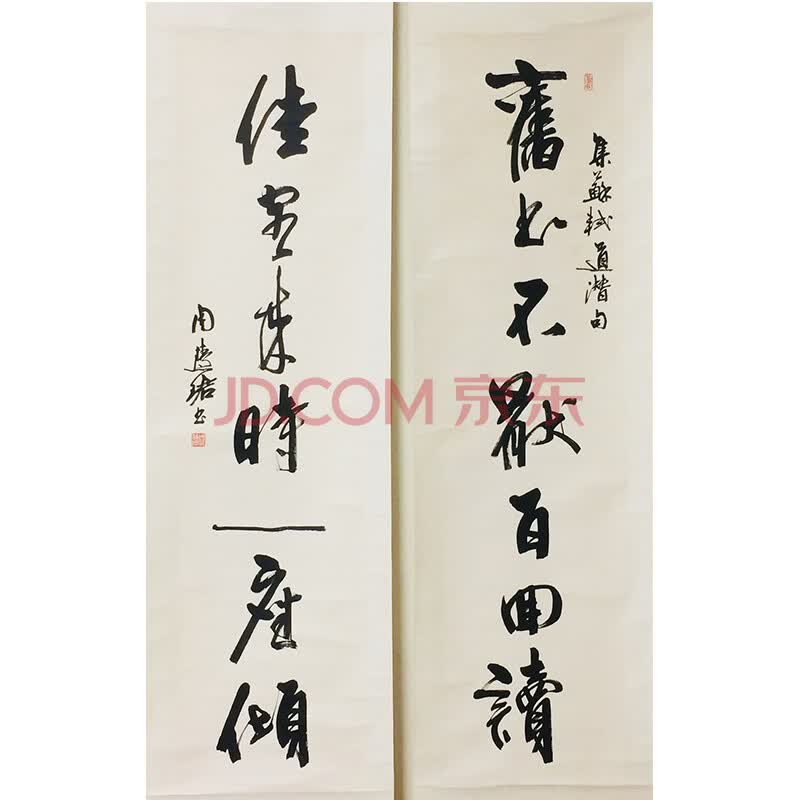 舊書不厭百回讀
集蘇軾道潛句
佳客来時一座傾
周慧珺书
JD.COM 京东